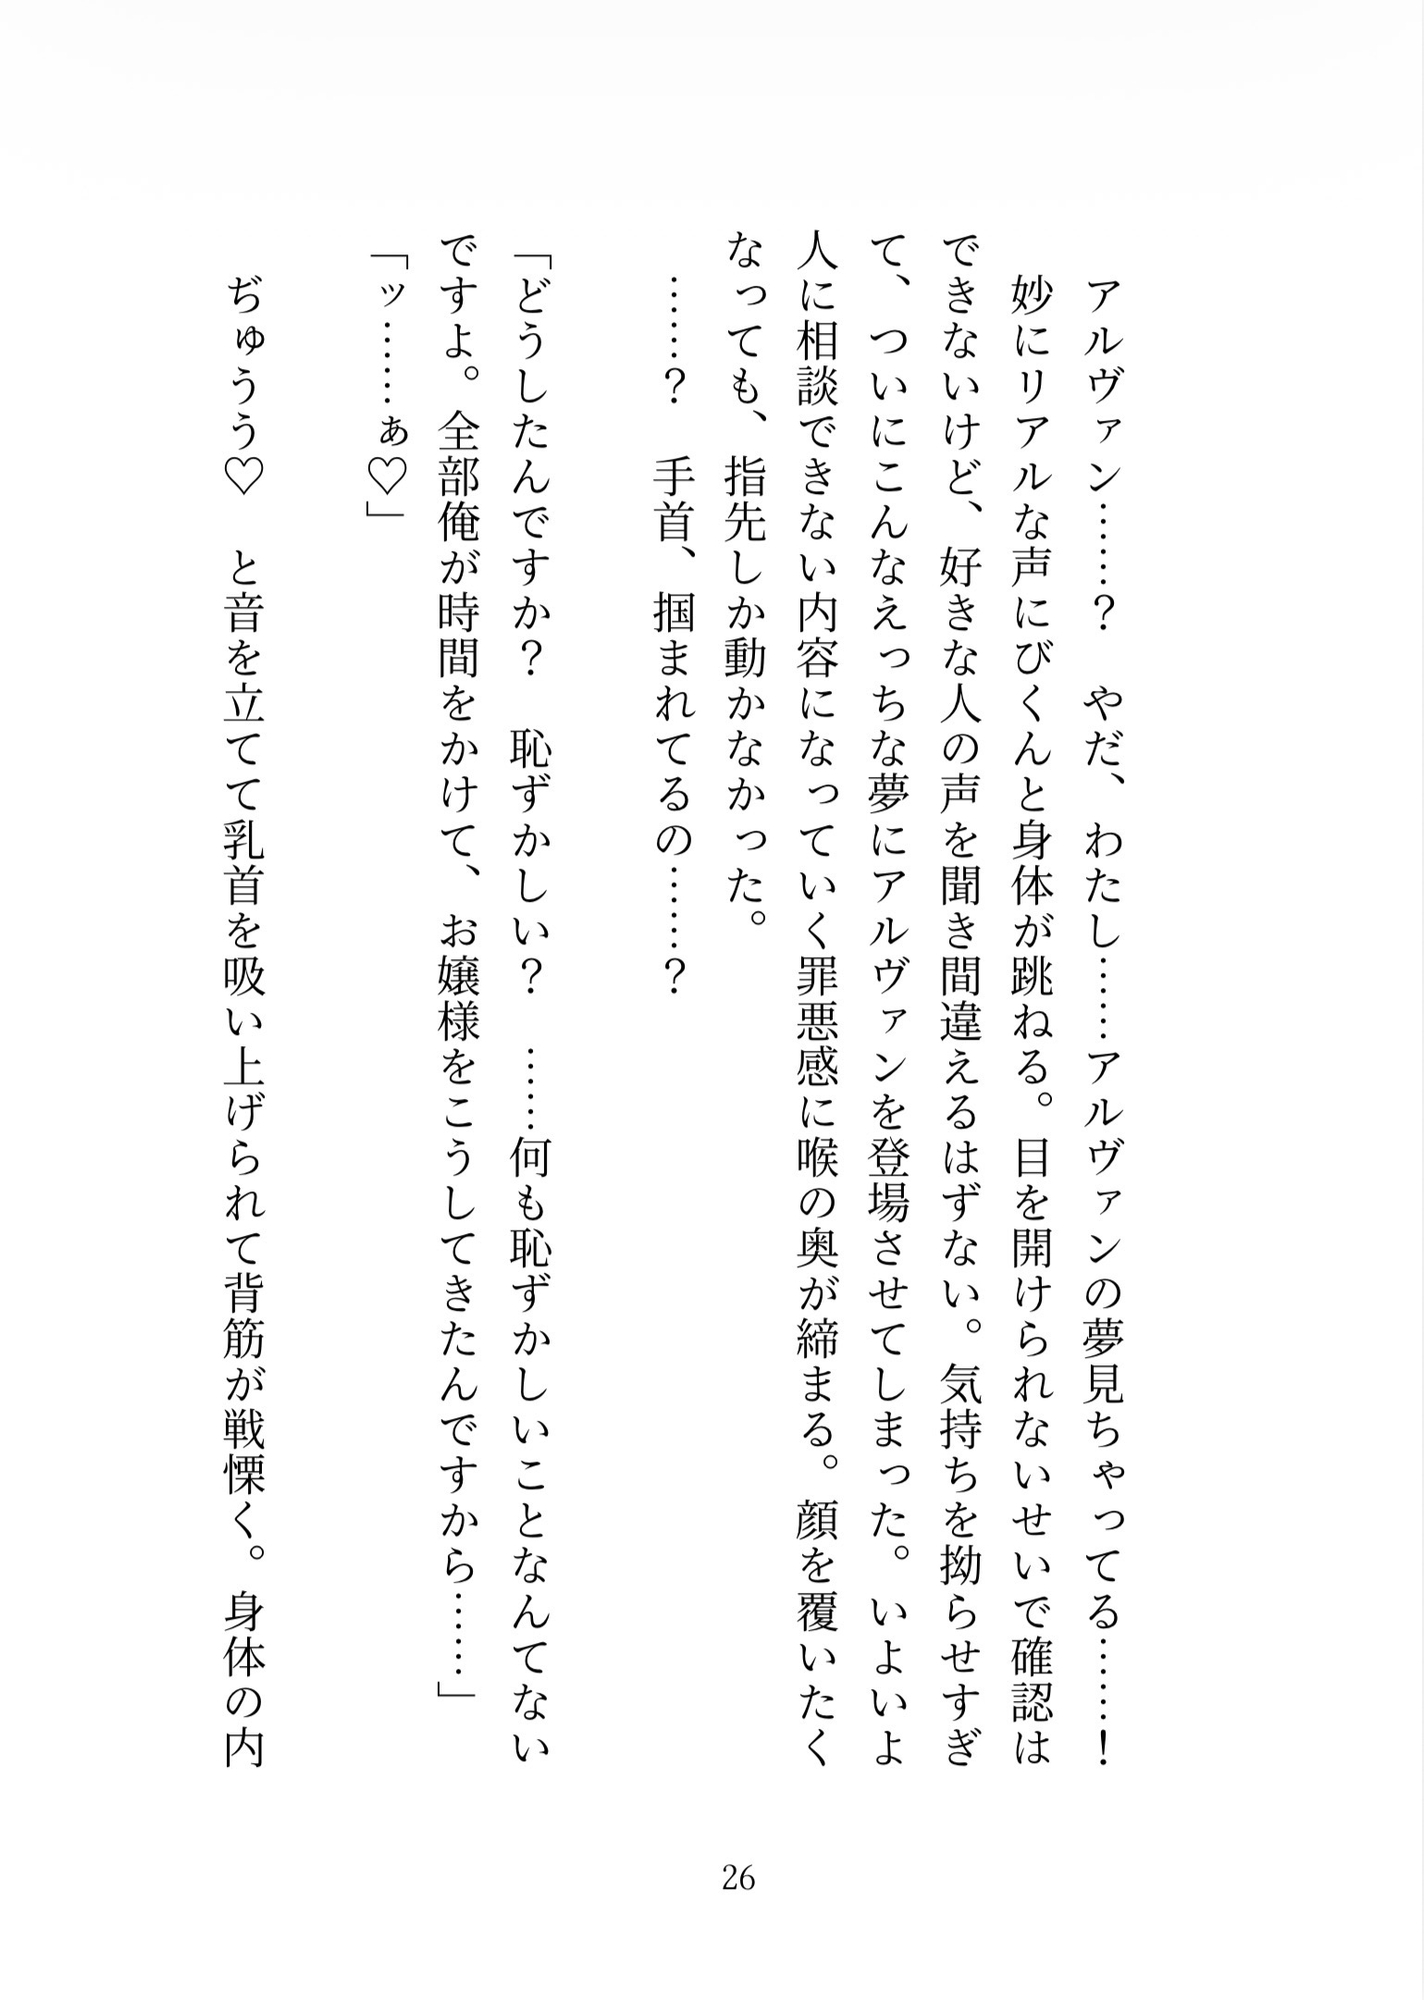 アルヴァン……？　やだ、わたし……アルヴァンの夢見ちゃってる……！
妙にリアルな声にびくんと身体が跳ねる。目を開けられないせいで確認は
できないけど、好きな人の声を聞き間違えるはずない。気持ちを拗らせすぎ
て、ついにこんなえっちな夢にアルヴァンを登場させてしまった。いよいよ
人に相談できない内容になっていく罪悪感に喉の奥が締まる。顔を覆いたく
なっても、指先しか動かなかった。
……？　手首、掴まれてるの……？
「どうしたんですか？　恥ずかしい？　……何も恥ずかしいことなんてない
ですよ。全部俺が時間をかけて、お嬢様をこうしてきたんですから……」
「ッ……ぁ♡」
ぢゅうう♡　と音を立てて乳首を吸い上げられて背筋が戦慄く。身体の内
26